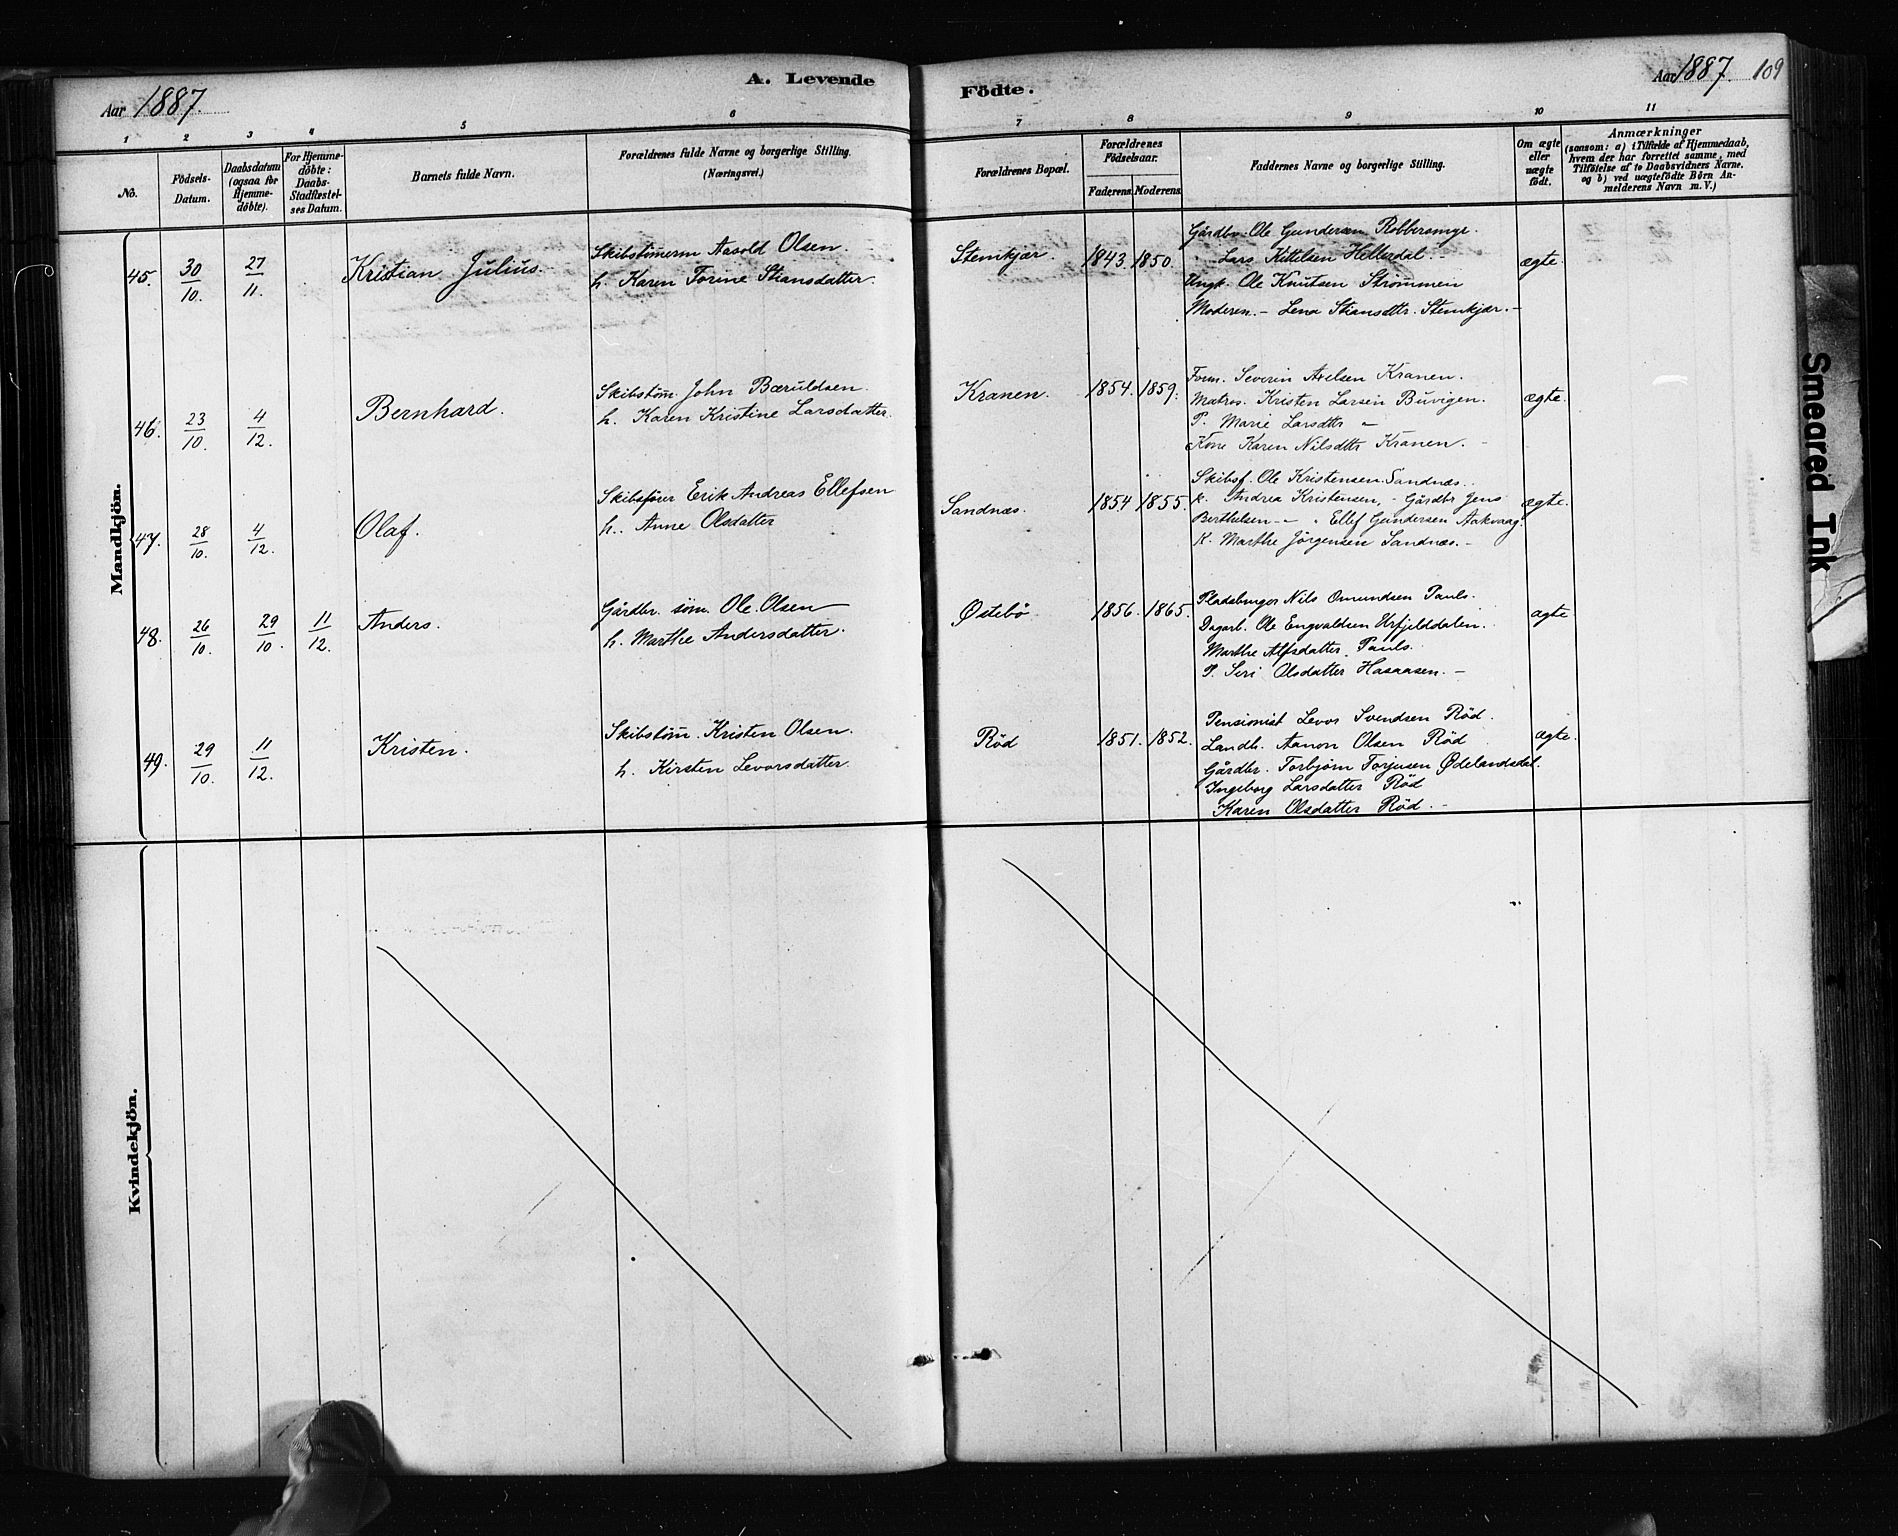 A. Levende Födte.
Aar 1887.
Aar 1887. 109
1 2 3 4 5 6 7 8 9 10 11
No.
Födsels-Datum.
Daabsdatum (ogsaa for Hjemme-döbte).
For Hjemme-döbte: Daabs-Stadfæstel-ses Datum.
Barnets fulde Navn.
Forældrenes fulde Navne og borgerlige Stilling. (Næringsvei.)
Forældrenes Bopæl.
Forældrenes Födselsaar.
Faderens. Moderens.
Faddernes Navne og borgerlige Stilling.
Om ægte eller uægte födt.
Anmærkninger
(saasom: a) i Tilfælde af Hjemmedaab,
hvem der har forrettet samme, med
Tilföielse af to Daabsvidners Navne.
og b) ved uægtefödte Börn An-
melderens Navn m.V.)
Mandkjön.
45. 30/10. 27/11. Kristian Julius
Skibstömerm Aasold Olsen.
h. Karen Torine Stiansdatter.
Stemkjær. 1843. 1850.
Gårdbr. Ole Gundersen Robbersmyr.
" Lars Kittelsen Hellesdal. -
Ungk. Ole Knutsen Strömmen
Moderen. - Lena Stiansdtr. Stemkjær. -
ægte.
46. 23/10. 4/12. Bernhard.
Skibstöm. John Bæruldsen.
h. Karen Kristine Larsdatter.
Kranen. 1854. 1859.
Form. Severin Axelsen Kranen.
Matros. Kristen Larsen Buvigen.
P. Marie Larsdtr "
Kone Karen Nilsdtr Kranen. -
ægte.
47. 28/10. 4/12. Olaf.
Skibsförer Erik Andreas Ellefsen
h. Anne Olsdatter
Sandnæs. 1854 1855.
Skibsf. Ole Kristensen Sandnæs.
K. Andrea Kristensen, - Gårdbr Jens
Berthelsen - " " Ellef Gundersen Aakvaag
K. Marthe Jörgensen Sandnæs. -
ægte.
48. 26/10. 29/10. 11/12. Anders.
Gårdbr. söm. Ole Olsen
h. Marthe Andersdatter.
Østebö 1856. 1865.
Pladsbruger Nils Omundsen Pauls.
Dagarb. Ole Engvaldsen
Marthe Alfsdatter Pauls.
P. Siri Olsdatter Hasaasen. -
ægte
49. 29/10. 11/12. Kristen.
Skibstöm. Kristen Olsen.
h. Kirsten Levorsdatter.
Röd 1851. 1852.
Pensionist Levor Svendsen Röd.
Landh. Aanon Olsen Röd
Gårdbr. Torbjörn Torjusen Ødelandsdal.
Ingeborg Larsdatter Röd
Karen Olsdatter Röd. -
ægte.
Kvindekjön.
Smeared Ink